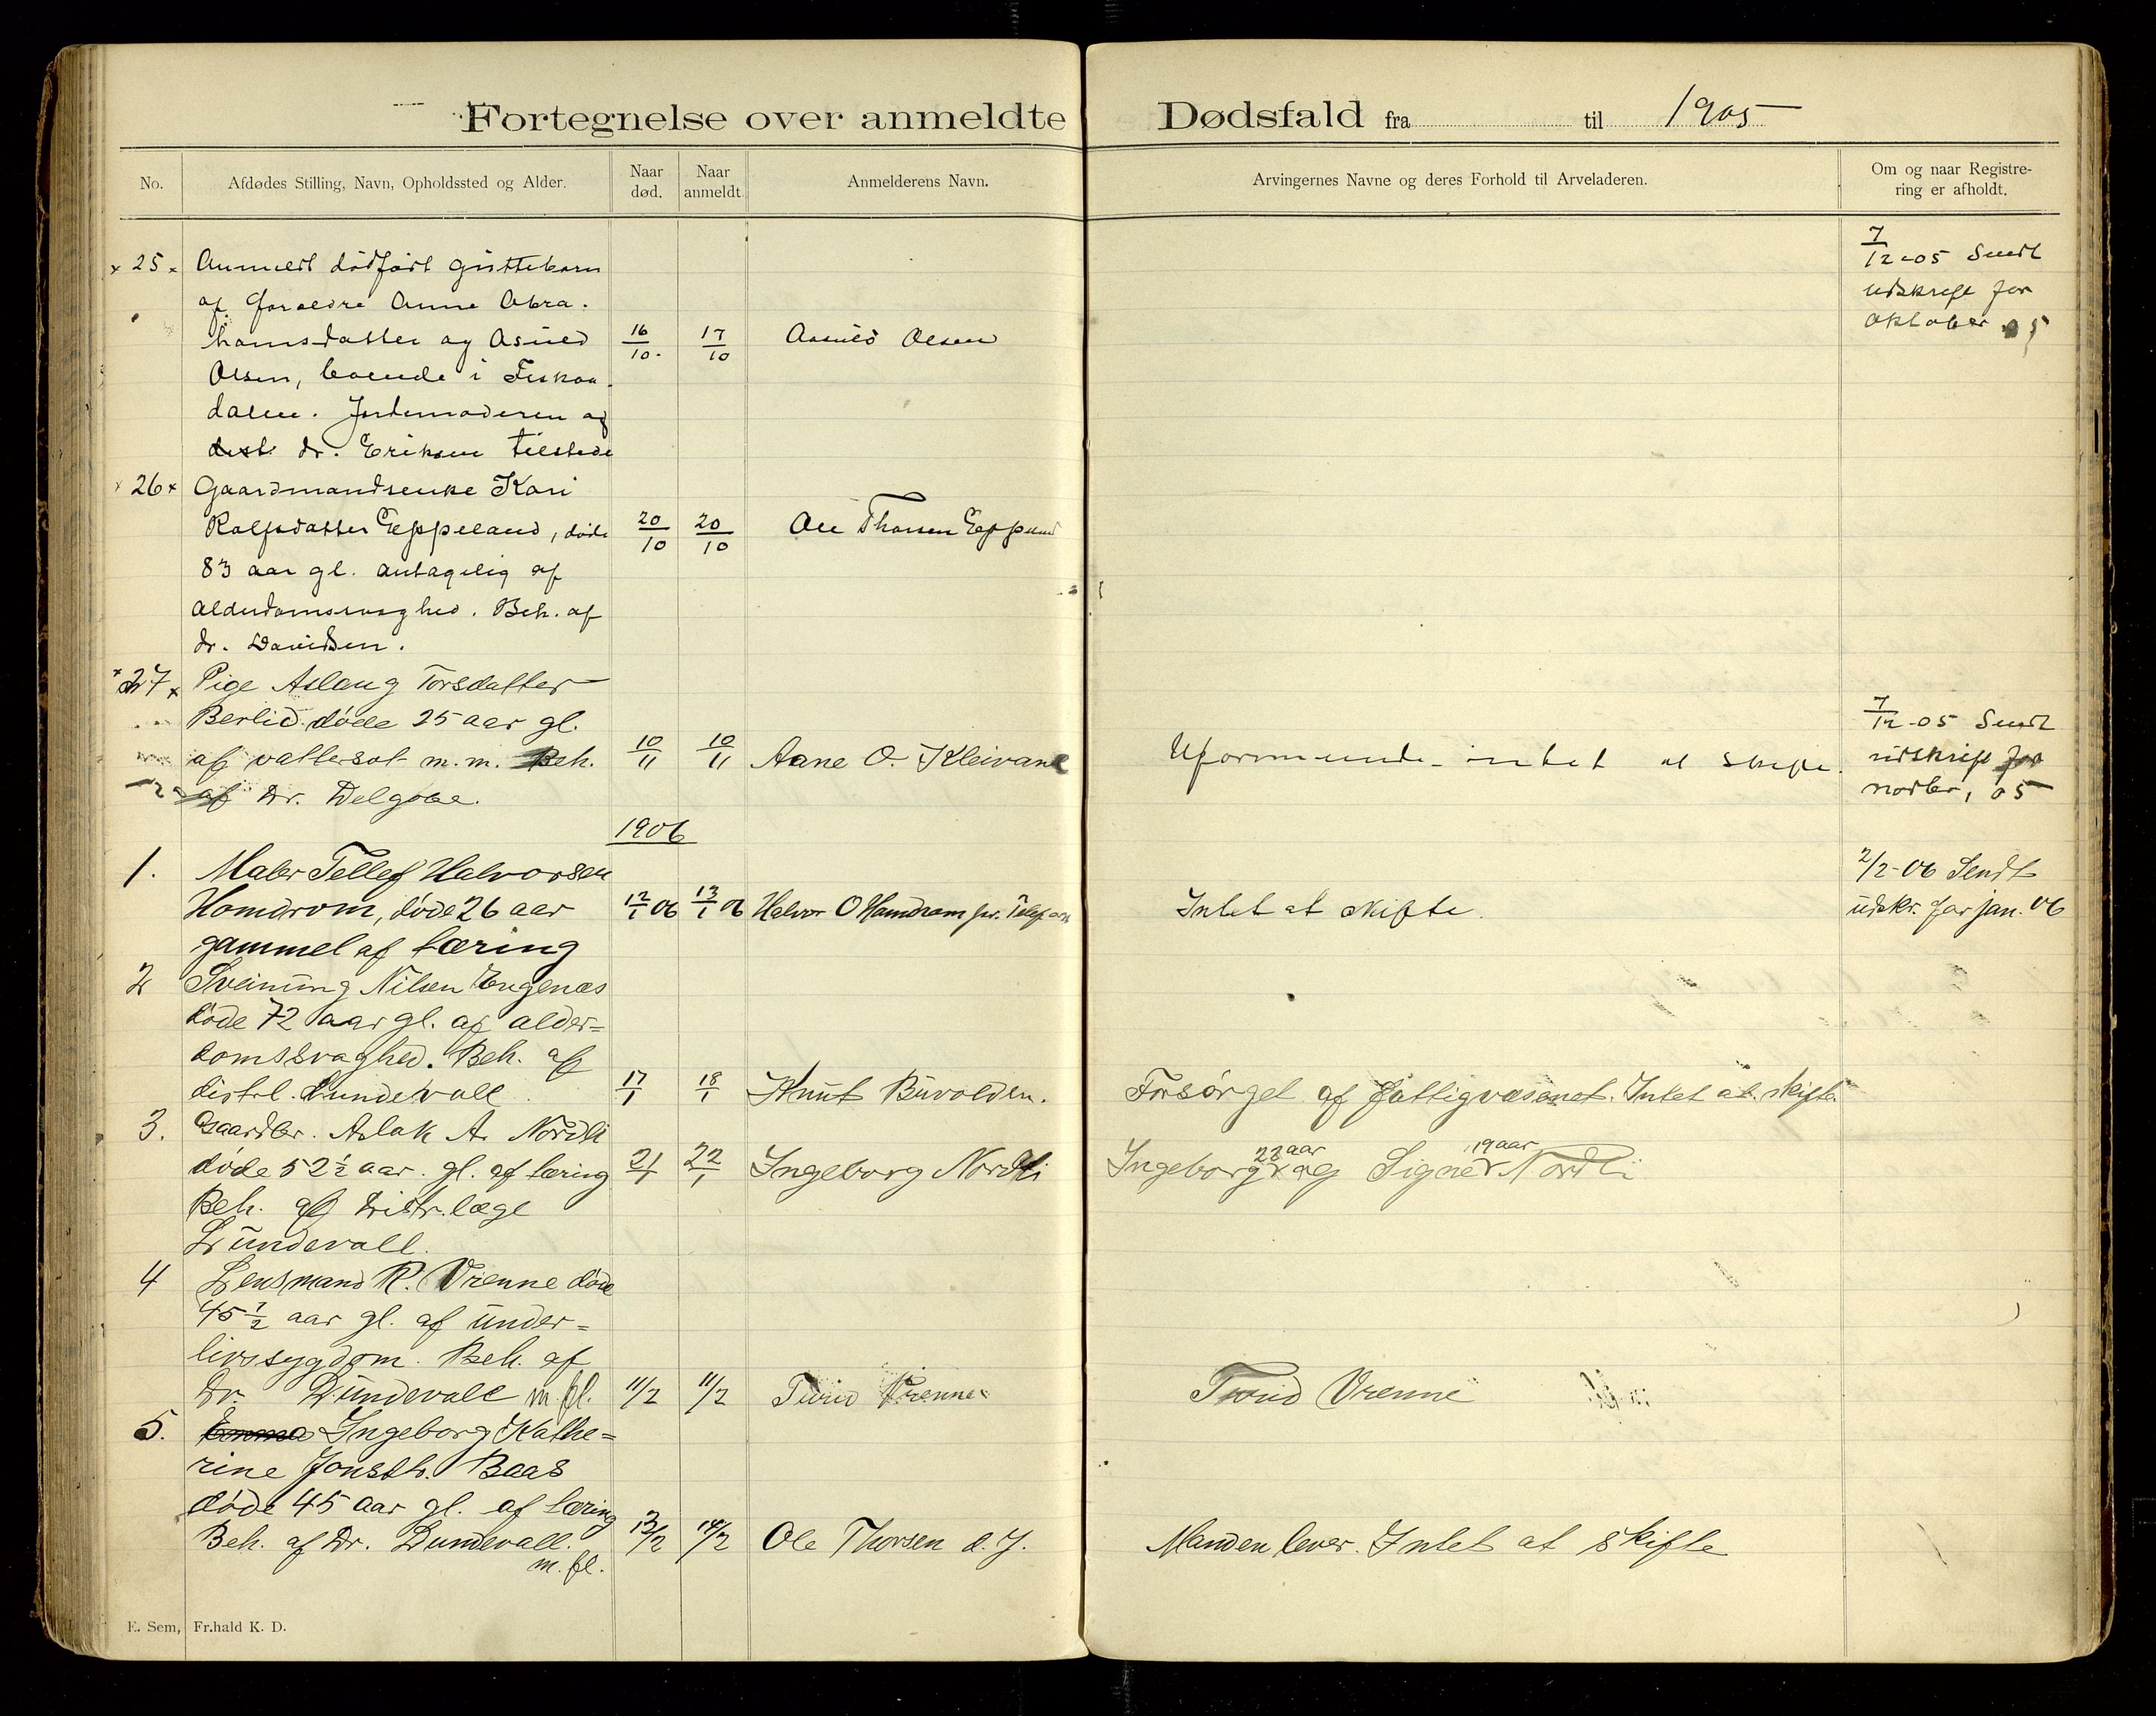 Fortegnelse over anmeldte Dødsfald fra til 1905
No.
Afdødes Stilling, Navn, Opholdssted og Alder.
Naar død.
Naar anmeldt.
Anmelderens Navn.
Arvingernes Navne og deres Forhold til Arveladeren.
Om og naar Registrering er afholdt.
x 25 x Anmeldt dødfødt guttebarn
af foraldre Anne Abra-
hamsdatter og Asuld 16/10. 17/10 Aasuld Olsen
Olsen, boende i Fiskaa-
dalen. Jordemoderen og
dist. dr. Eriksen tilstede
7/12-05 Sendt
udskrift for
oktober 05
x 26 x Gaardmandsenke Kari
Rolfsdatter Eppeland, døde 20/10 20/10 Ole Thorsen Eppeland
83 aar gl. antagelig af
alderdomssvaghed. Beh. af
dr. Davidsen.
x 27 x Pige Aslaug Torsdatter
Berlid døde 25 aar gl.
af vattersot m.m. Beh. 10/11 10/11 Aane O. Kleivane Uformuende - intet at skifte.
af Dr. Delgobe.
7/12-05 Sendt
udskrift for
novbr, 05
1906
1. Maler Tellef Halvorsen
Homdrom, døde 26 aar 12/1 06 13/1 06 Halvor O Hamdrom pr. Telefon Intet at skifte.
gammel af tæring
2/2-06 Sendt
udskr. for jan. 06
2 Sveinung Nilsen Engenæs
døde 72 aar gl. af alder=
domssvaghed. Beh. af
distrl. Lundevall. 17/1 18/1 Knut Buvolden. Forsørget af fattigvæsenet. Intet at skifte.
3. Gaardbr. Aslak A. Nordli
døde 52 ½ aar. gl. af tæring 21/1 22/1 Ingeborg Nordli Ingeborg 23 aar og Signe 19 aar Nordli
Beh. af Distr.læge
Lundevall.
4 Lensmand R. Vrenne døde
45 ½ aar gl. af under=
livssygdom. Beh. af
Dr. Lundevall m.fl. 11/2 11/2 Turid Vrenne Turid Vrenne
5. Emma Ingeborg Kathe=
rine Jonsdtr. Baas
døde 45 aar gl. af tæring
Beh. af Dr. Lundevall. 13/2 14/2 Ole Thorsen d.y. Manden lever. Intet at skifte
m.fl.
E. Sem, Fr.hald K. D.